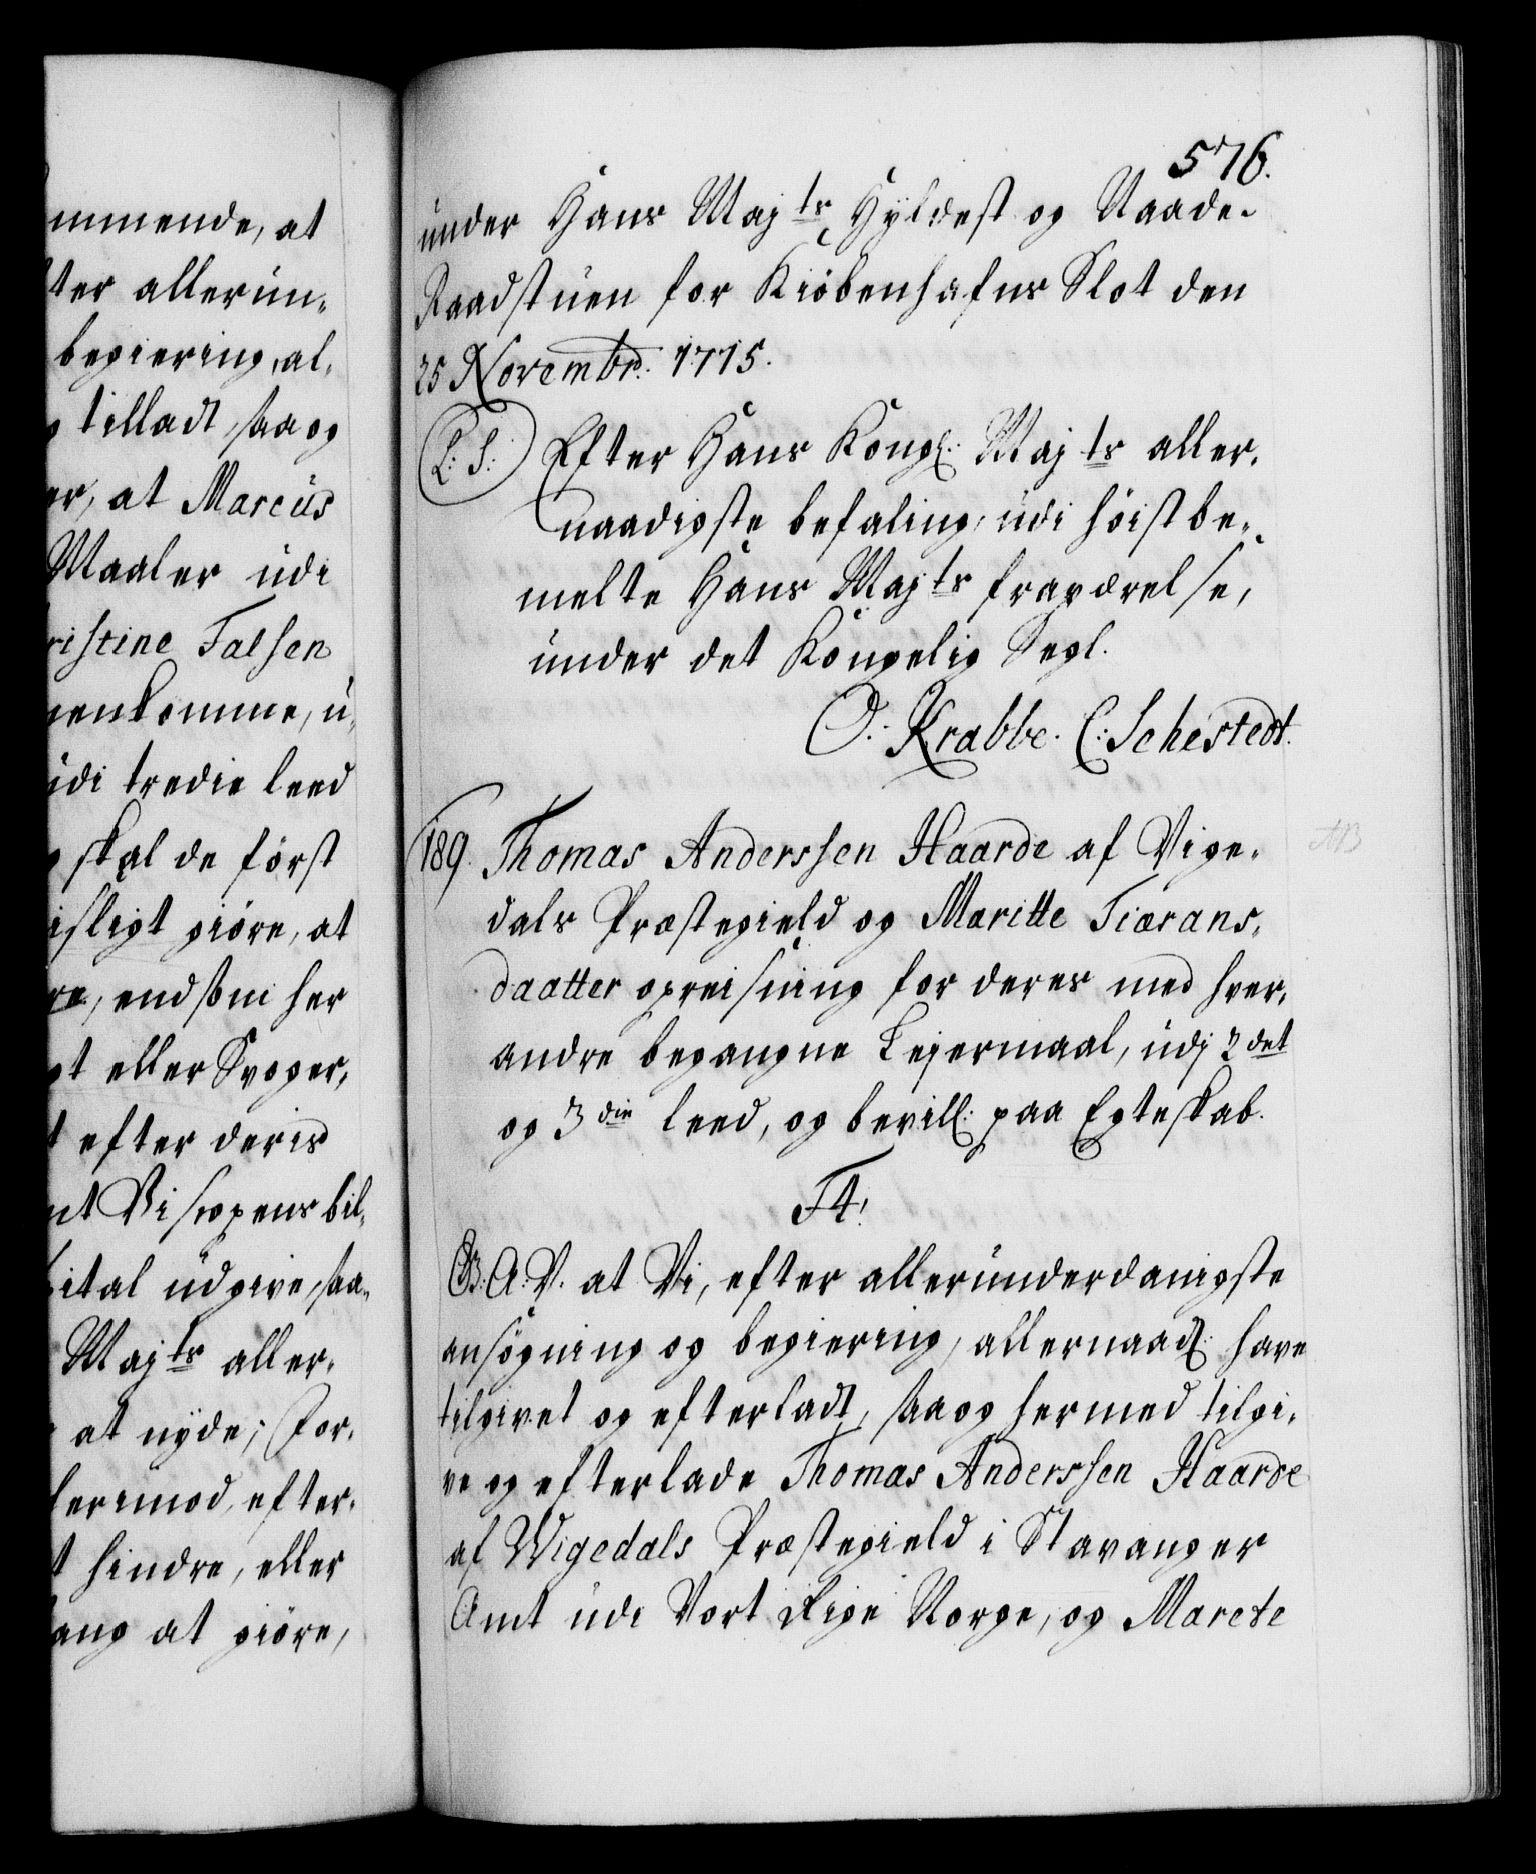 mmende, at
ter allerun-
begiering, al-
tilladt, saa og
er, at Marcus
Maaler udi
ristine Falsen
menkomme, u-
udi tredie leed
skal de først
isligt giøre, at
re, endskiøn her
gt eller Svoger-
t efter deris
nt Biscopens bil-
ital udgive, saa-
Majts aller-
at nyde; For-
herimod, efter-
t hindre, eller
ang at giøre,
576.
under Hans Majts Hyldest og Naade.
Raadstuen for Kiöbenhafns Slot den
25 Novembr: 1715.
L: S: Efter Hans Kongl: Majts aller-
naadigste befaling, udi höistbe-
melte Hans Majts fraværelse,
under det Kongelig Segl.
O: Krabbe. C: Schestedt.
189. Thomas Anderssen Haarde af Vige-
dals Præstegield og Maritte Tiærans-
daatter opreisning for deres med hver-
andre begangne Lejermaal, udj 2det
og 3die leed, og bevill: paa Egteskab.
F4!
G. A: V. at Vi, efter allerunderdanigste
ansögning og begiering, allernaad: have
tilgivet og efterladt, saa og hermed tilgi-
ve og efterlade Thomas Anderssen Haarde
af Wigedals Præstegield i Stavanger
Amt udi Vort Rige Norge, og Marete